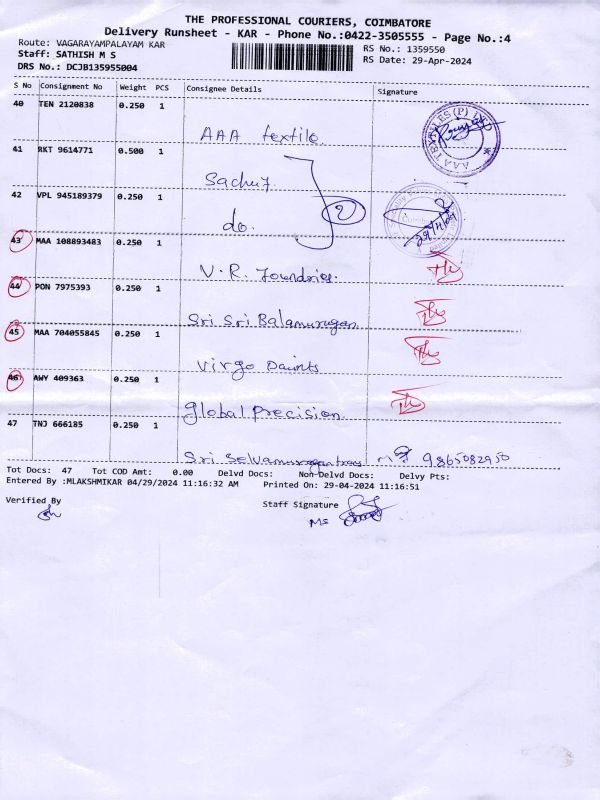 THE PROFESSIONAL COURIERS, COIMBATORE
Delivery Runsheet - KAR - Phone No.:0422-3505555 - Page No.:4
Route: VAGARAYAMPALAYAM KAR
RS No.: 1359550
Staff: SATHISH M S
RS Date: 29-Apr-2024
DRS No.: DCJB135955004
S No Consignment No Weight PCS Consignee Details Signature
40 TEN 2120838 0.250 1
AAA textile
41 RKT 9614771 0.500 1
42 VPL 945189379 0.250 1
2
do.
43 MAA 108893483 0.250 1
V. R. Foundries.
44 PON 7975393 0.250 1
Sri Sri Balamurugan
45 MAA 704055845 0.250 1
Virgo
46 AWY 409363 0.250 1
Global Precision.
47 TNJ 666185 0.250 1
Sri 9865082950
Tot Docs: 47 Tot COD Amt: 0.00 Delvd Docs: Non-Delvd Docs: Delvy Pts:
Entered By :MLAKSHMIKAR 04/29/2024 11:16:32 AM Printed On: 29-04-2024 11:16:51
Verified By
Staff Signature
MS